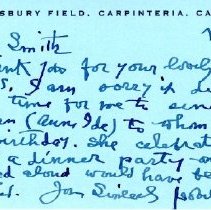 SBURY FIELD, CARPINTERIA, CA
Smith
nk you for your lovely
s. I am sorry it
time for me to sen
(Aunt Ide) to whom
birthday. She celebrat
a dinner party
ed aloud would have be
Jon Sincerely